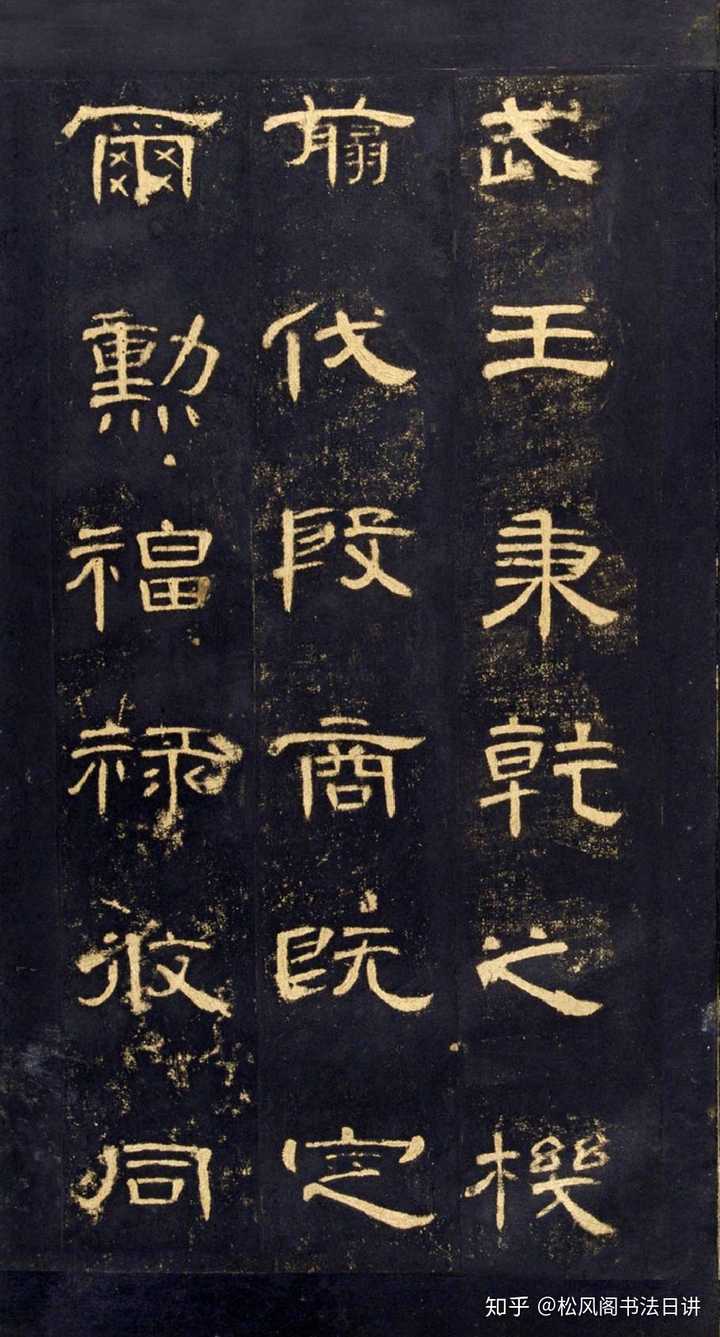 武王秉乾之機
翦伐殷商既定
爾勳福祿攸同
知乎 @松风阁书法日讲